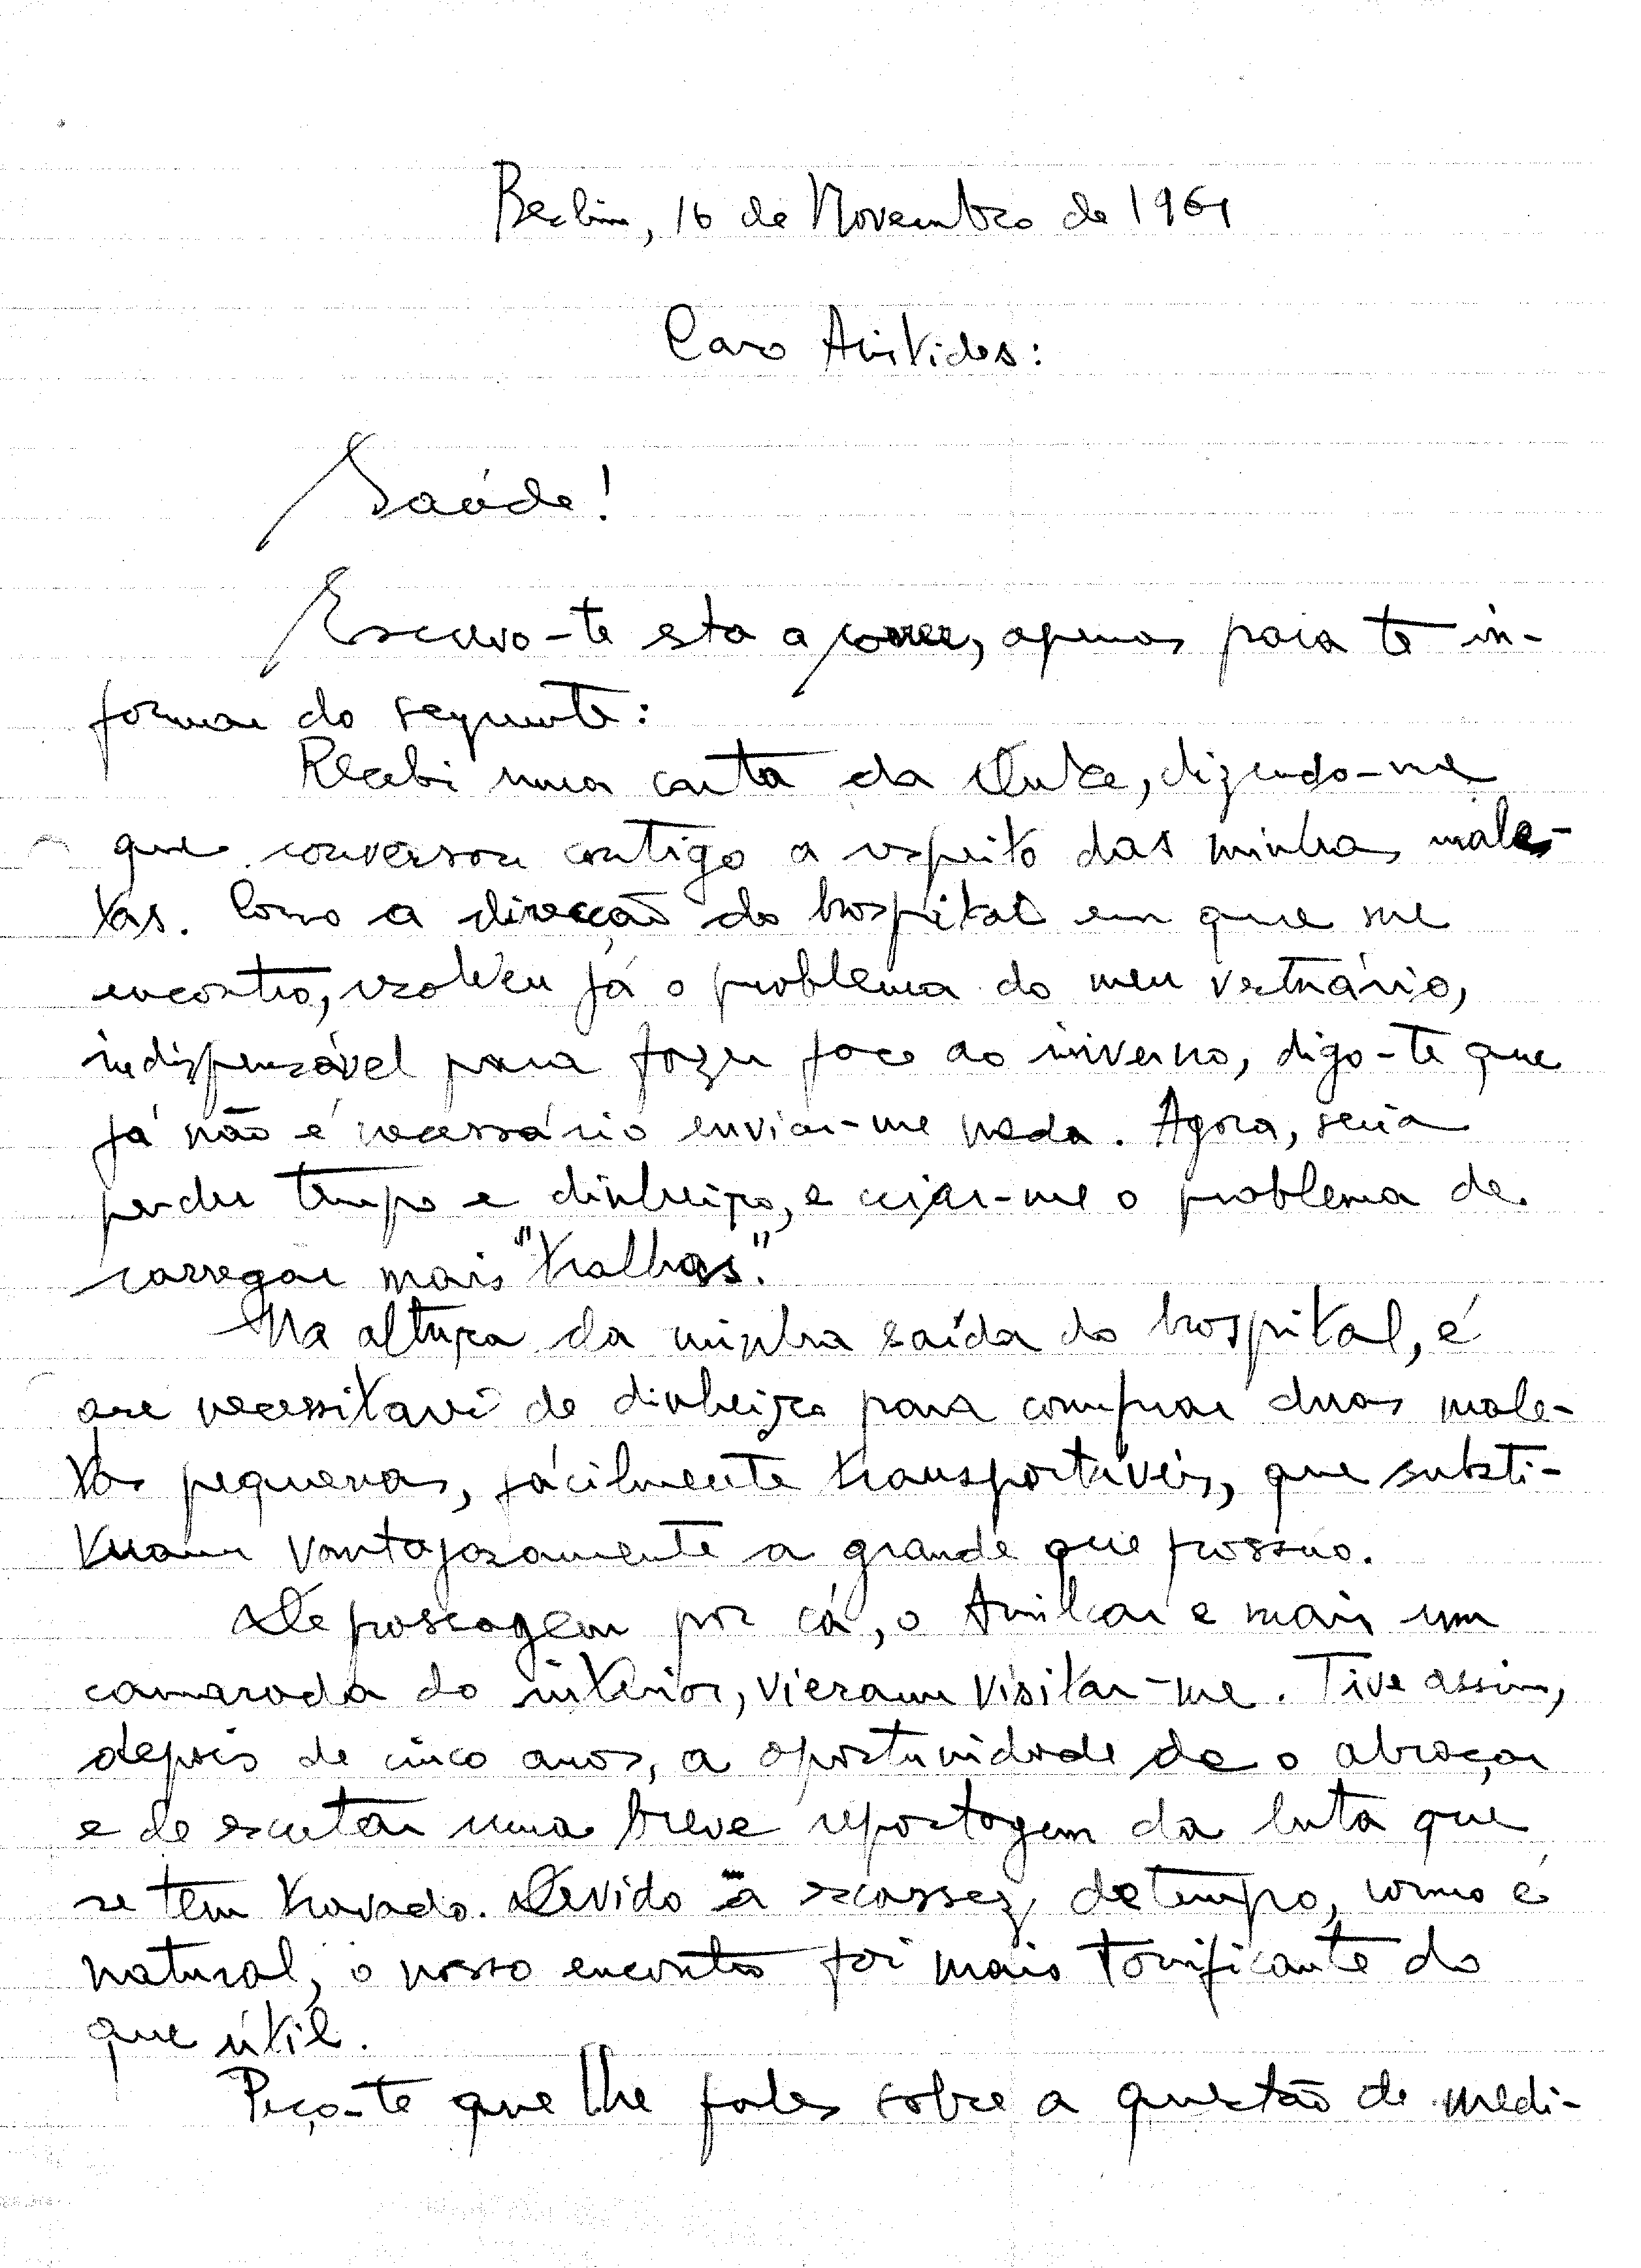 Berlim, 16 de Novembro de 1961
Caro Aristides:
Saúde!
Escrevo-te esta a correr, apenas para te in-
formar do seguinte:
Recebi uma carta da Dulce, dizendo-me
que conversou contigo a respeito das minhas male-
tas. Como a direcção do hospital em que me
encontro, resolveu já o problema do meu vestuário,
indispensável para fazer face ao inverno, digo-te que
já não é necessário enviar-me nada. Agora, seria
perder tempo e dinheiro, e criar-me o problema de
carregar mais "tralhas".
Na altura da minha saída do hospital, é
que necessitarei de dinheiro para comprar duas male-
tas pequenas, fácilmente transportáveis, que substi-
tuam vantajosamente a grande que possuo.
De passagem por cá, o Amílcar e mais um
camarada do interior, vieram visitar-me. Tive assim,
depois de cinco anos, a oportunidade de o abraçar
e de escutar uma breve reportagem da luta que
se tem travado. Devido à escassez de tempo, como é
natural, o nosso encontro foi mais tonificante do
que útil.
Peço-te que lhe fales sobre a questão de medi-